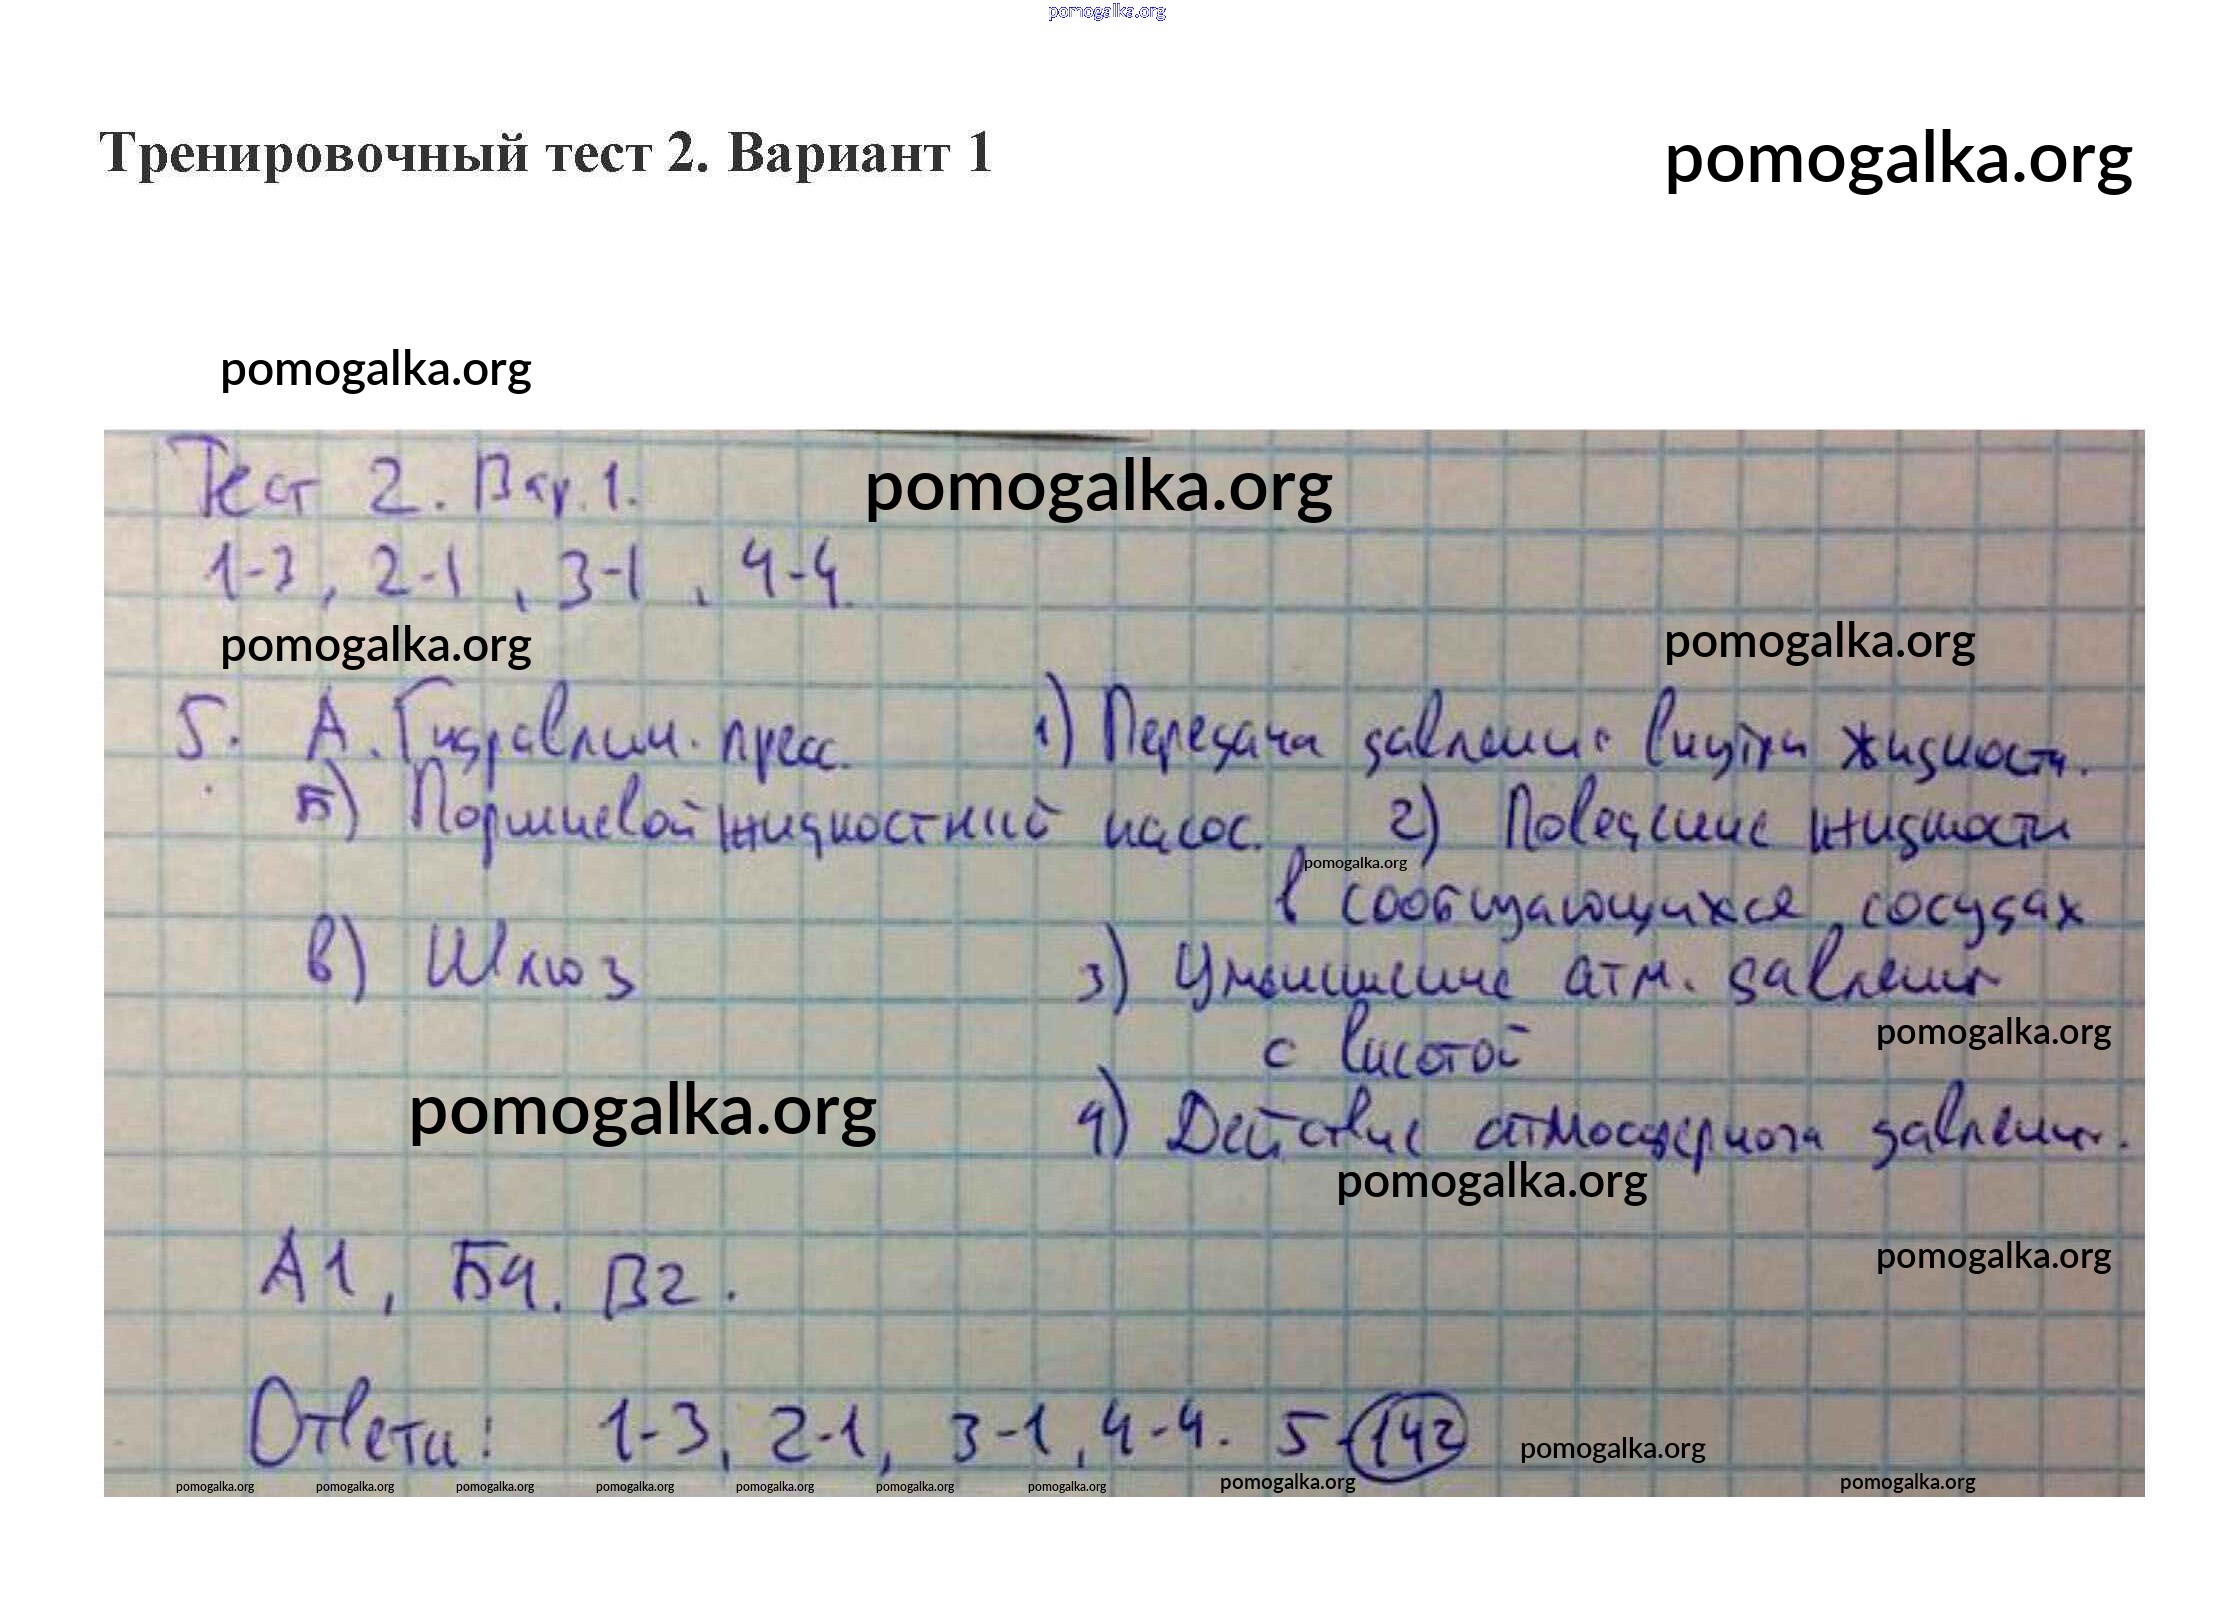 pomogalka.org
Тренировочный тест 2. Вариант 1
pomogalka.org
pomogalka.org
Тест 2. Вар. 1.
pomogalka.org
1-3, 2-1, 3-1, 4-4.
pomogalka.org
pomogalka.org
5. А. Гидравлич. пресс. 1) Передача давления внутри жидкости.
Б) Поршневой жидкостный насос. 2) Поведение жидкости
pomogalka.org
в сообщающихся сосудах
В) Шлюз 3) Уменьшение атм. давления
pomogalka.org
с высотой
pomogalka.org
4) Действие атмосферного давления.
pomogalka.org
А1, Б4. В2.
pomogalka.org
Ответы: 1-3, 2-1, 3-1, 4-4. 5-142
pomogalka.org
pomogalka.org pomogalka.org pomogalka.org pomogalka.org pomogalka.org pomogalka.org pomogalka.org pomogalka.org pomogalka.org